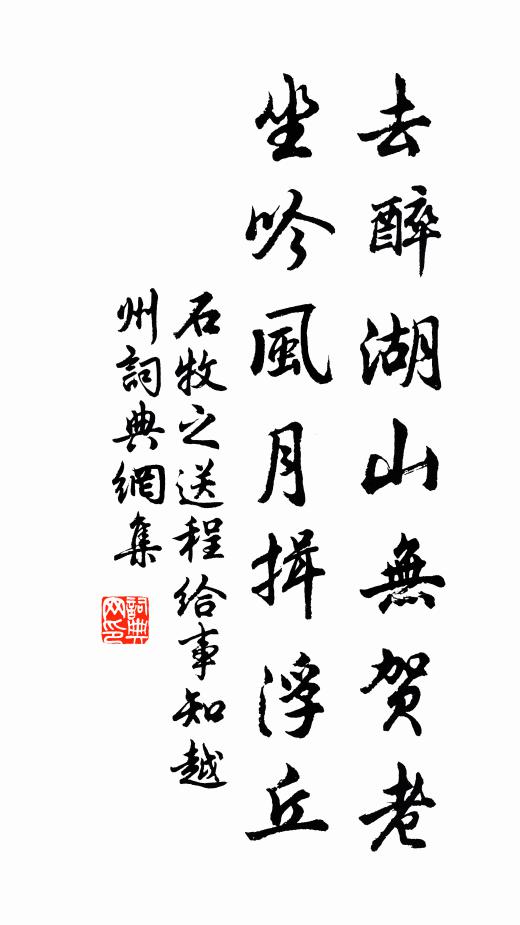 去醉湖山無贺老
坐吟風月揖浮丘
石牧之送程给事知越
州詞典網集
詞典
网印